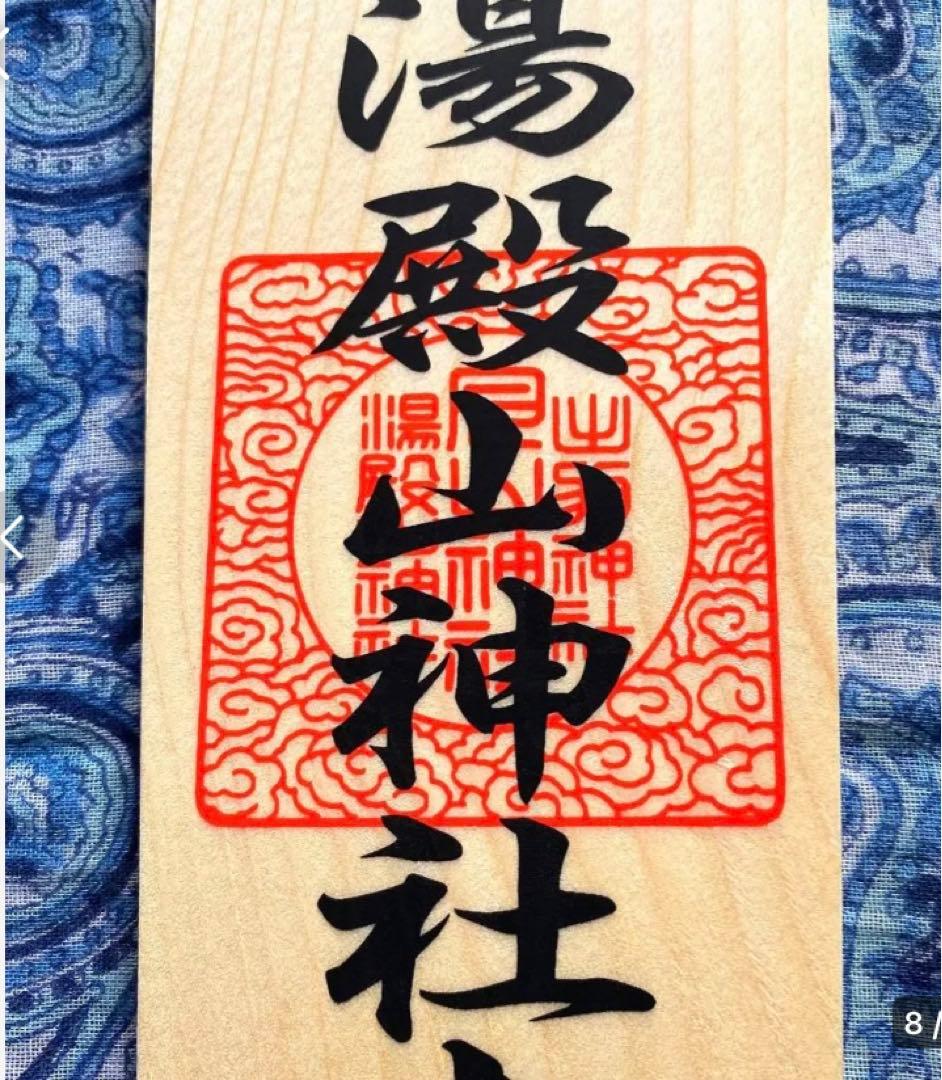 湯殿山神社
出羽神社
月山神社
湯殿山神社
8 /